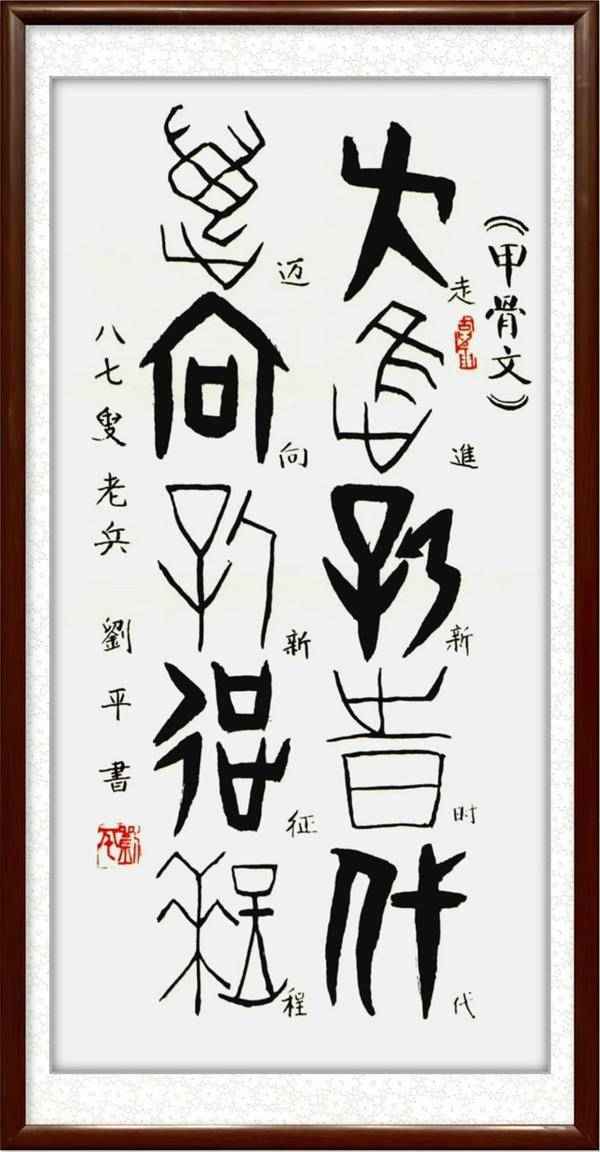 《甲骨文》
走進新时代
迈向新征程
八七叟老兵 劉平書